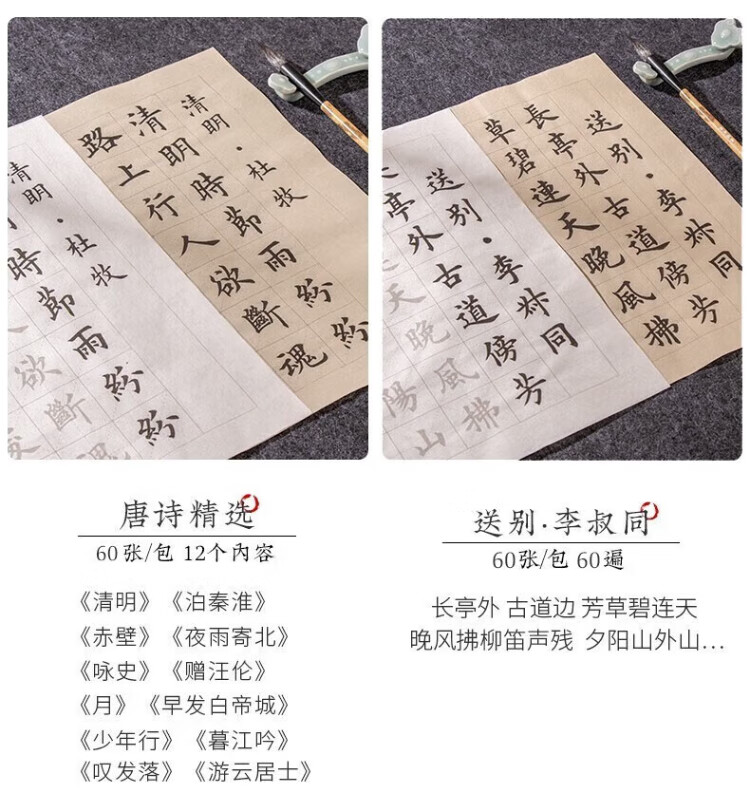 清明·杜牧
清明時節雨紛紛
路上行人欲斷魂
清明·杜牧
時節雨紛紛
欲斷魂
送别·李叔同
長亭外古道傍芳
草碧連天晚風拂
送别·李叔同
亭外古道傍芳
天晚風拂
陽山
唐诗精选
60张/包 12个内容
《清明》《泊秦淮》
《赤壁》《夜雨寄北》
《咏史》《赠汪伦》
《月》《早发白帝城》
《少年行》《暮江吟》
《叹发落》《游云居士》
送别·李叔同
60张/包 60遍
长亭外 古道边 芳草碧连天
晚风拂柳笛声残 夕阳山外山...